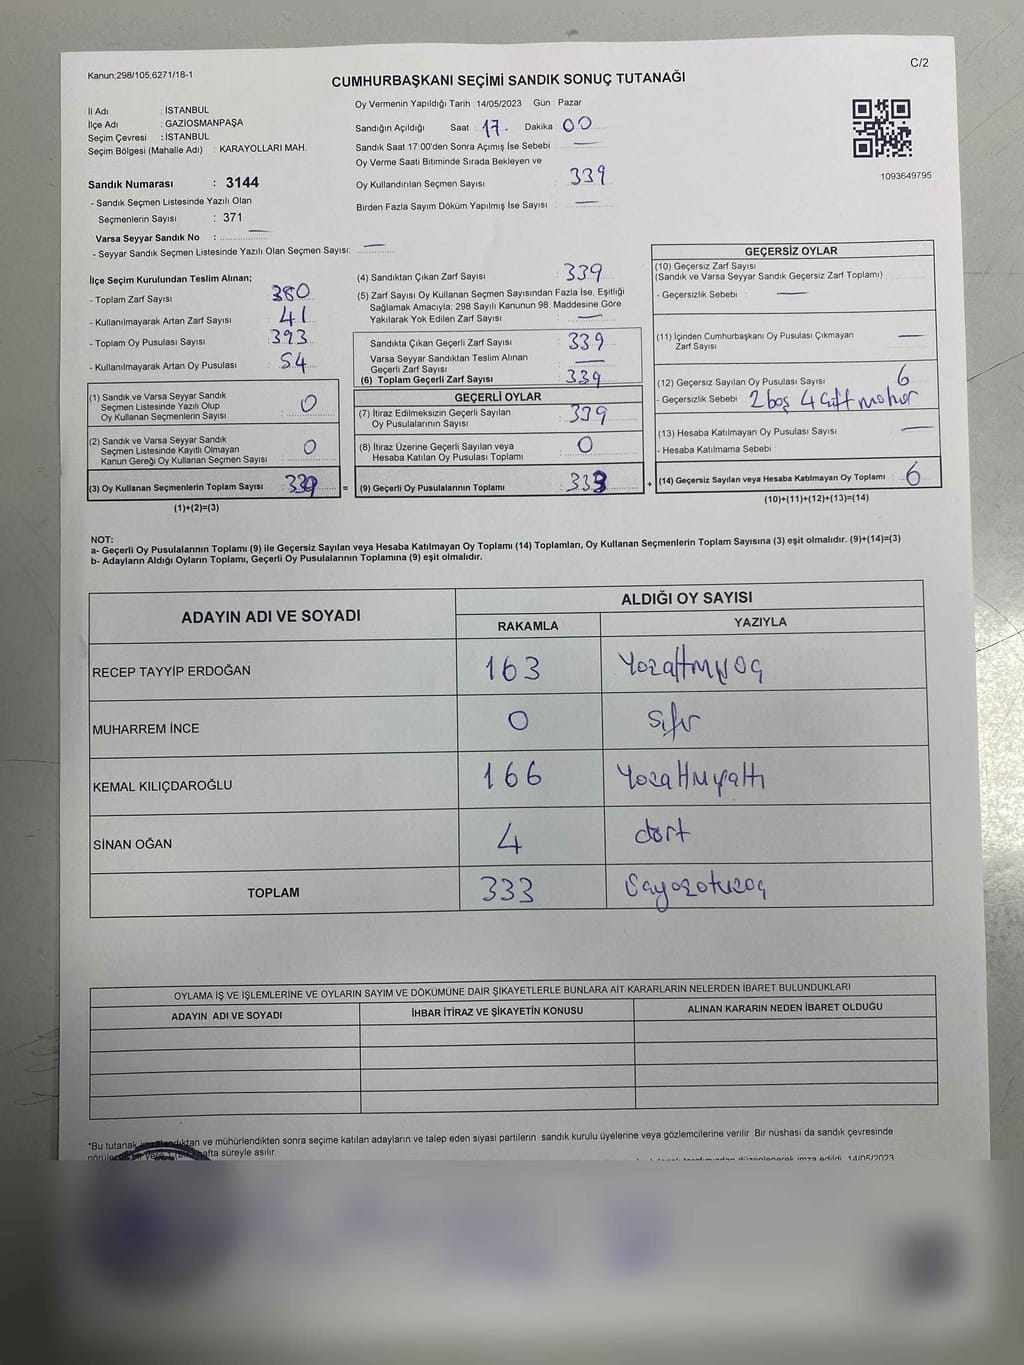 Kanun;298/105,6271/18-1
C/2
CUMHURBAŞKANI SEÇİMİ SANDIK SONUÇ TUTANAĞI
İl Adı : İSTANBUL
İlçe Adı : GAZİOSMANPAŞA
Seçim Çevresi : İSTANBUL
Seçim Bölgesi (Mahalle Adı) : KARAYOLLARI MAH.
Sandık Numarası : 3144
- Sandık Seçmen Listesinde Yazılı Olan
Seçmenlerin Sayısı : 371
Varsa Seyyar Sandık No : —
- Seyyar Sandık Seçmen Listesinde Yazılı Olan Seçmen Sayısı: —
Oy Vermenin Yapıldığı Tarih : 14/05/2023 Gün : Pazar
Sandığın Açıldığı Saat 17. Dakika : 00
Sandık Saat 17:00'den Sonra Açımış İse Sebebi : —
Oy Verme Saati Bitiminde Sırada Bekleyen ve
Oy Kullandırılan Seçmen Sayısı : 339
Birden Fazla Sayım Döküm Yapılmış İse Sayısı : —
1093649795
İlçe Seçim Kurulundan Teslim Alınan;
- Toplam Zarf Sayısı : 380
- Kullanılmayarak Artan Zarf Sayısı : 41
- Toplam Oy Pusulası Sayısı : 393
- Kullanılmayarak Artan Oy Pusulası : 54
(1) Sandık ve Varsa Seyyar Sandık
Seçmen Listesinde Yazılı Olup
Oy Kullanan Seçmenlerin Sayısı : 0
(2) Sandık ve Varsa Seyyar Sandık
Seçmen Listesinde Kayıtlı Olmayan
Kanun Gereği Oy Kullanan Seçmen Sayısı : 0
(3) Oy Kullanan Seçmenlerin Toplam Sayısı : 339 =
(1)+(2)=(3)
(4) Sandıktan Çıkan Zarf Sayısı : 339
(5) Zarf Sayısı Oy Kullanan Seçmen Sayısından Fazla İse, Eşitliği
Sağlamak Amacıyla; 298 Sayılı Kanunun 98. Maddesine Göre
Yakılarak Yok Edilen Zarf Sayısı : —
Sandıkta Çıkan Geçerli Zarf Sayısı : 339
Varsa Seyyar Sandıktan Teslim Alınan
Geçerli Zarf Sayısı : —
(6) Toplam Geçerli Zarf Sayısı : 339
GEÇERLİ OYLAR
(7) İtiraz Edilmeksizin Geçerli Sayılan
Oy Pusulalarının Sayısı : 339
(8) İtiraz Üzerine Geçerli Sayılan veya
Hesaba Katılan Oy Pusulası Toplamı : 0
(9) Geçerli Oy Pusulalarının Toplamı : 333 +
GEÇERSİZ OYLAR
(10) Geçersiz Zarf Sayısı
(Sandık ve Varsa Seyyar Sandık Geçersiz Zarf Toplamı)
- Geçersizlik Sebebi : —
(11) İçinden Cumhurbaşkanı Oy Pusulası Çıkmayan
Zarf Sayısı —
(12) Geçersiz Sayılan Oy Pusulası Sayısı : 6
- Geçersizlik Sebebi : 2 boş 4 Çift mühür
(13) Hesaba Katılmayan Oy Pusulası Sayısı : —
- Hesaba Katılmama Sebebi :
(14) Geçersiz Sayılan veya Hesaba Katılmayan Oy Toplamı : 6
(10)+(11)+(12)+(13)=(14)
NOT:
a- Geçerli Oy Pusulalarının Toplamı (9) ile Geçersiz Sayılan veya Hesaba Katılmayan Oy Toplamı (14) Toplamları, Oy Kullanan Seçmenlerin Toplam Sayısına (3) eşit olmalıdır. (9)+(14)=(3)
b- Adayların Aldığı Oyların Toplamı, Geçerli Oy Pusulalarının Toplamına (9) eşit olmalıdır.
ADAYIN ADI VE SOYADI
ALDIĞI OY SAYISI
RAKAMLA YAZIYLA
RECEP TAYYİP ERDOĞAN 163 Yüzaltmışüç
MUHARREM İNCE 0 sıfır
KEMAL KILIÇDAROĞLU 166 Yüzaltmışaltı
SİNAN OĞAN 4 dört
TOPLAM 333 Üçyüzotuzüç
OYLAMA İŞ VE İŞLEMLERİNE VE OYLARIN SAYIM VE DÖKÜMÜNE DAİR ŞİKAYETLERLE BUNLARA AİT KARARLARIN NELERDEN İBARET BULUNDUKLARI
ADAYIN ADI VE SOYADI İHBAR İTİRAZ VE ŞİKAYETİN KONUSU ALINAN KARARIN NEDEN İBARET OLDUĞU
*Bu tutanak imzalandıktan ve mühürlendikten sonra seçime katılan adayların ve talep eden siyasi partilerin sandık kurulu üyelerine veya gözlemcilerine verilir. Bir nüshası da sandık çevresinde
hafta süreyle asılır.
düzenlenerek imza edildi. 14/05/2023